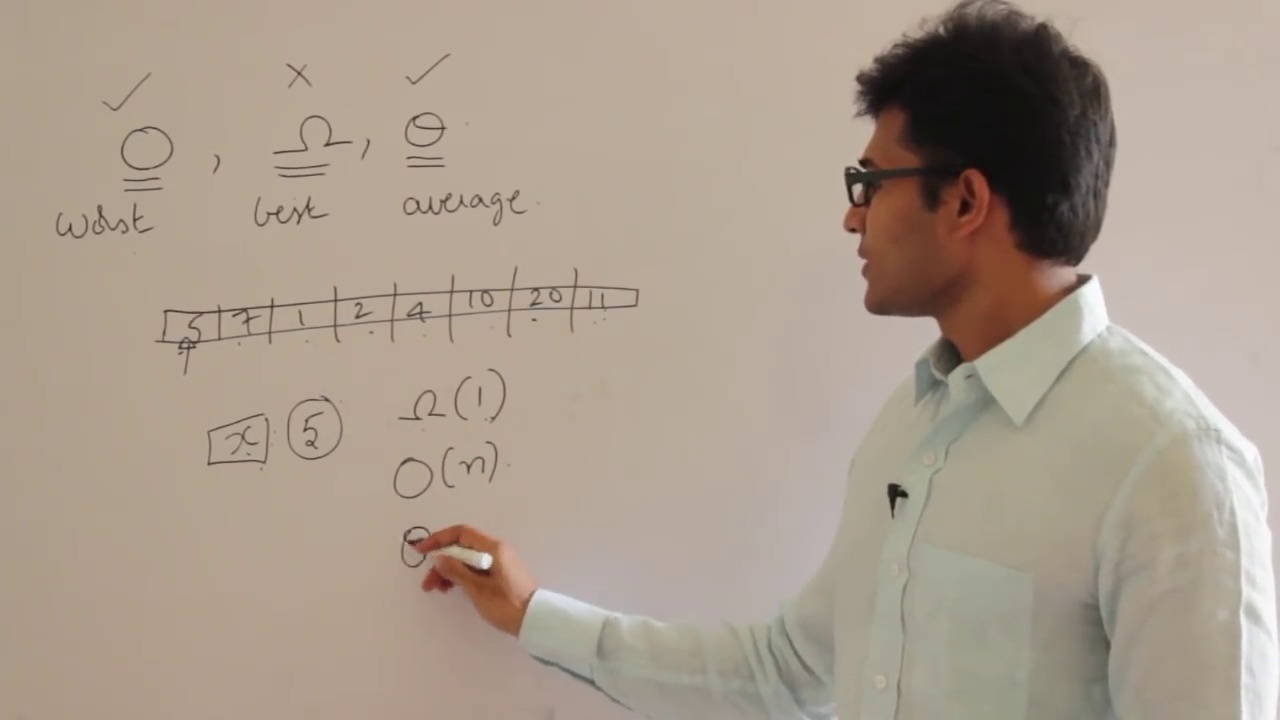 O , Ω , Θ
worst best average.
5 7 1 2 4 10 20 11
x 5 Ω(1)
O(n)
Θ